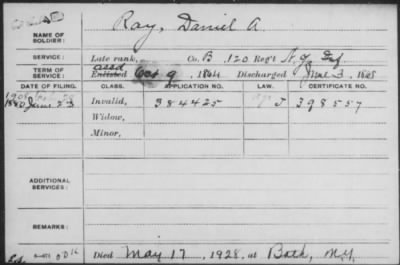 DEAD
NAME OF SOLDIER: Ray, Daniel A
SERVICE: Late rank, Co. B, 120 Reg't N.Y. Inf
TERM OF SERVICE: Enlisted Oct 9, 1864 Discharged June 3, 1865
DATE OF FILING. CLASS. APPLICATION NO. LAW. CERTIFICATE NO.
1880 June 23 Invalid, 384425 J 398557
Widow,
Minor,
ADDITIONAL SERVICES:
REMARKS:
Died May 17, 1928, at Bath, N.Y.